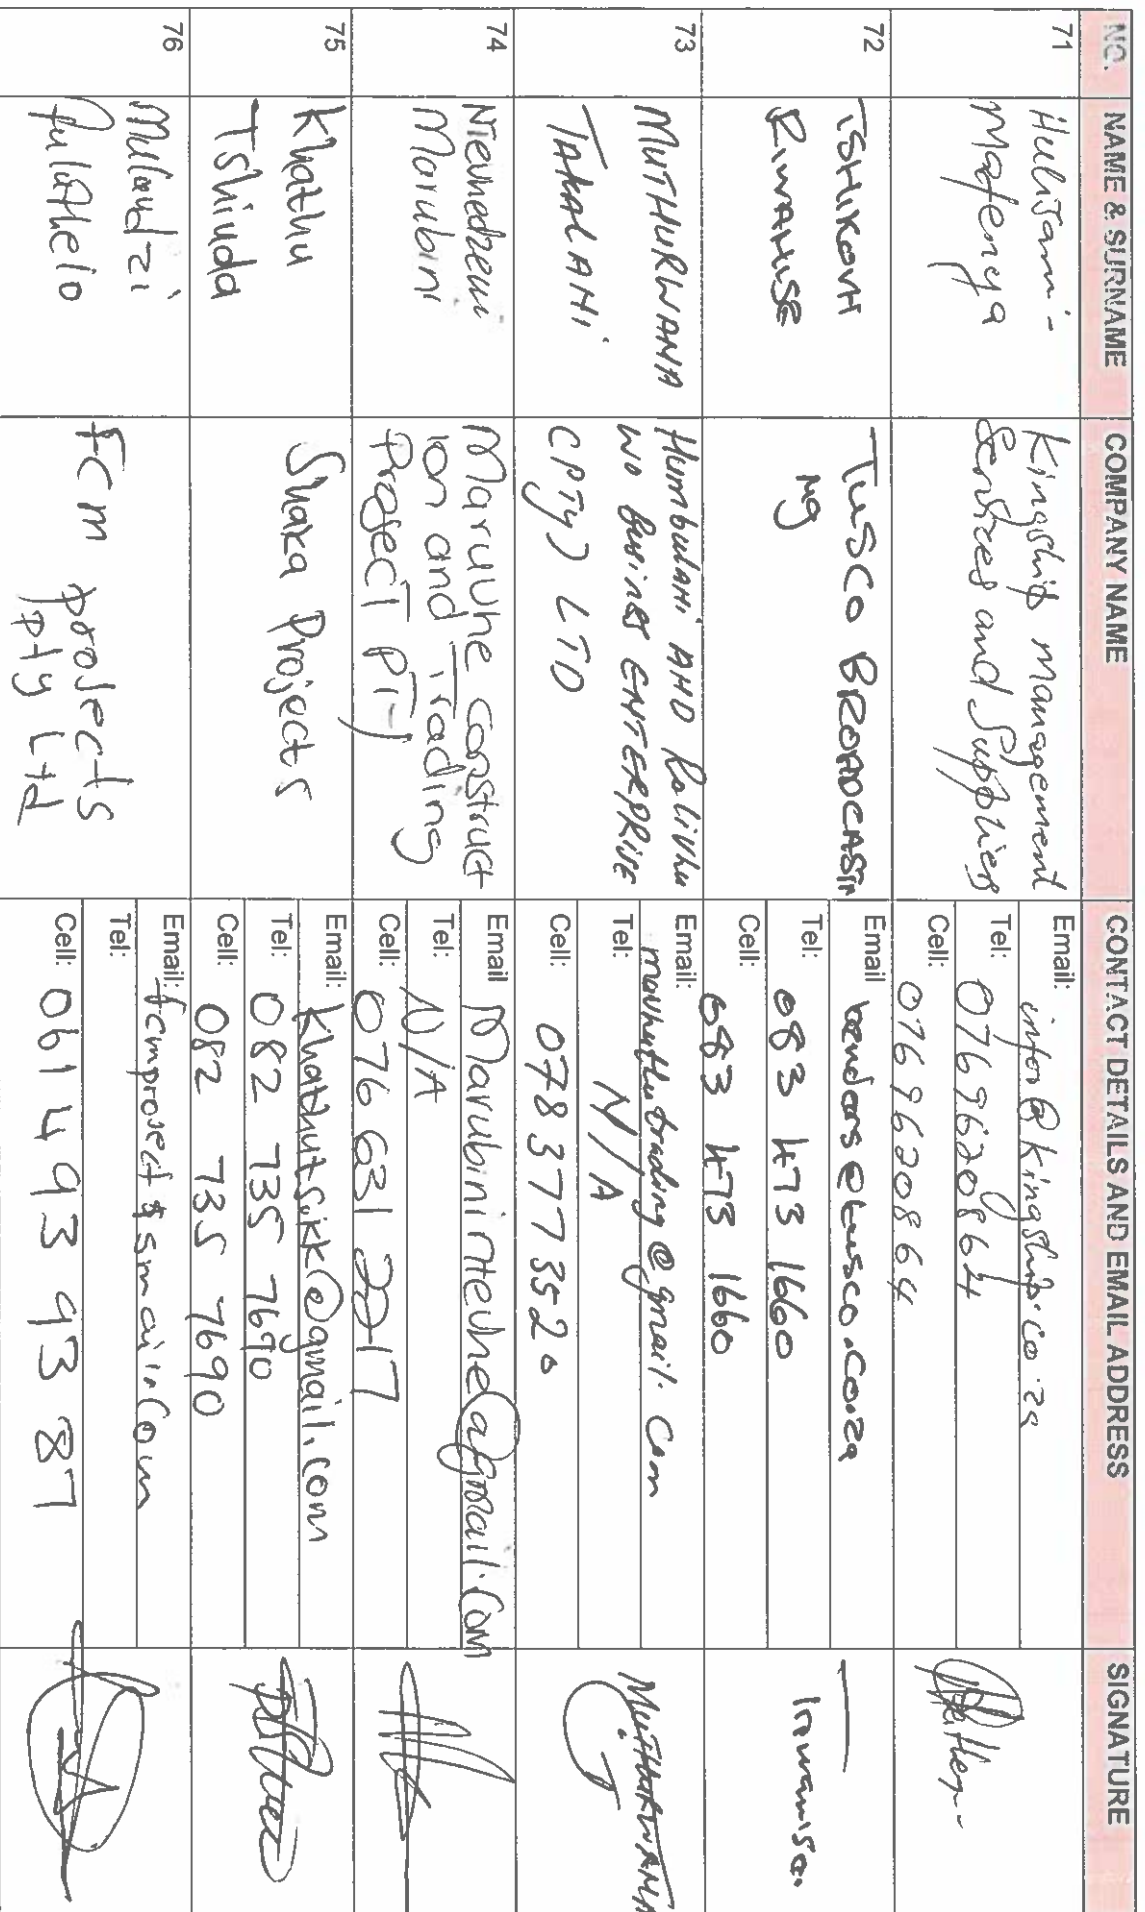 NO. NAME & SURNAME COMPANY NAME CONTACT DETAILS AND EMAIL ADDRESS SIGNATURE
71
Hulisani -
Mafenya
Kingship management
Services and Suppliers
Email: info@kingship.co.za
Tel: 0769620864
Cell: 0769620864
72
TSHIKOVHI
RINWAHISE
TUSCO BROADCASTI
NG
Email vendors@tusco.co.za
Tel: 083 473 1660
Cell: 083 473 1660
73
MUTHURWANA
TAKALANI
Humbulani AND Rolivhu
wo Business ENTERPRISE
(PTY) LTD
Email: mavhuthutrading@gmail.com
Tel: N/A
Cell: 0783773520
MUTHURWANA
74
Nievhedzeni
Marubini
Maruvhe construct
ion and Trading
Project PTY
Email Marubininteuhe@gmail.com
Tel: N/A
Cell: 076 631 2217
75
Khathu
Tshiuda
Shaka Projects
Email: Khathuts.kk@gmail.com
Tel: 082 735 7690
Cell: 082 735 7690
76
Mulaudzi
fulufhelo
FCM projects
pty Ltd
Email: fcmproject$smail.com
Tel:
Cell: 061 493 93 87